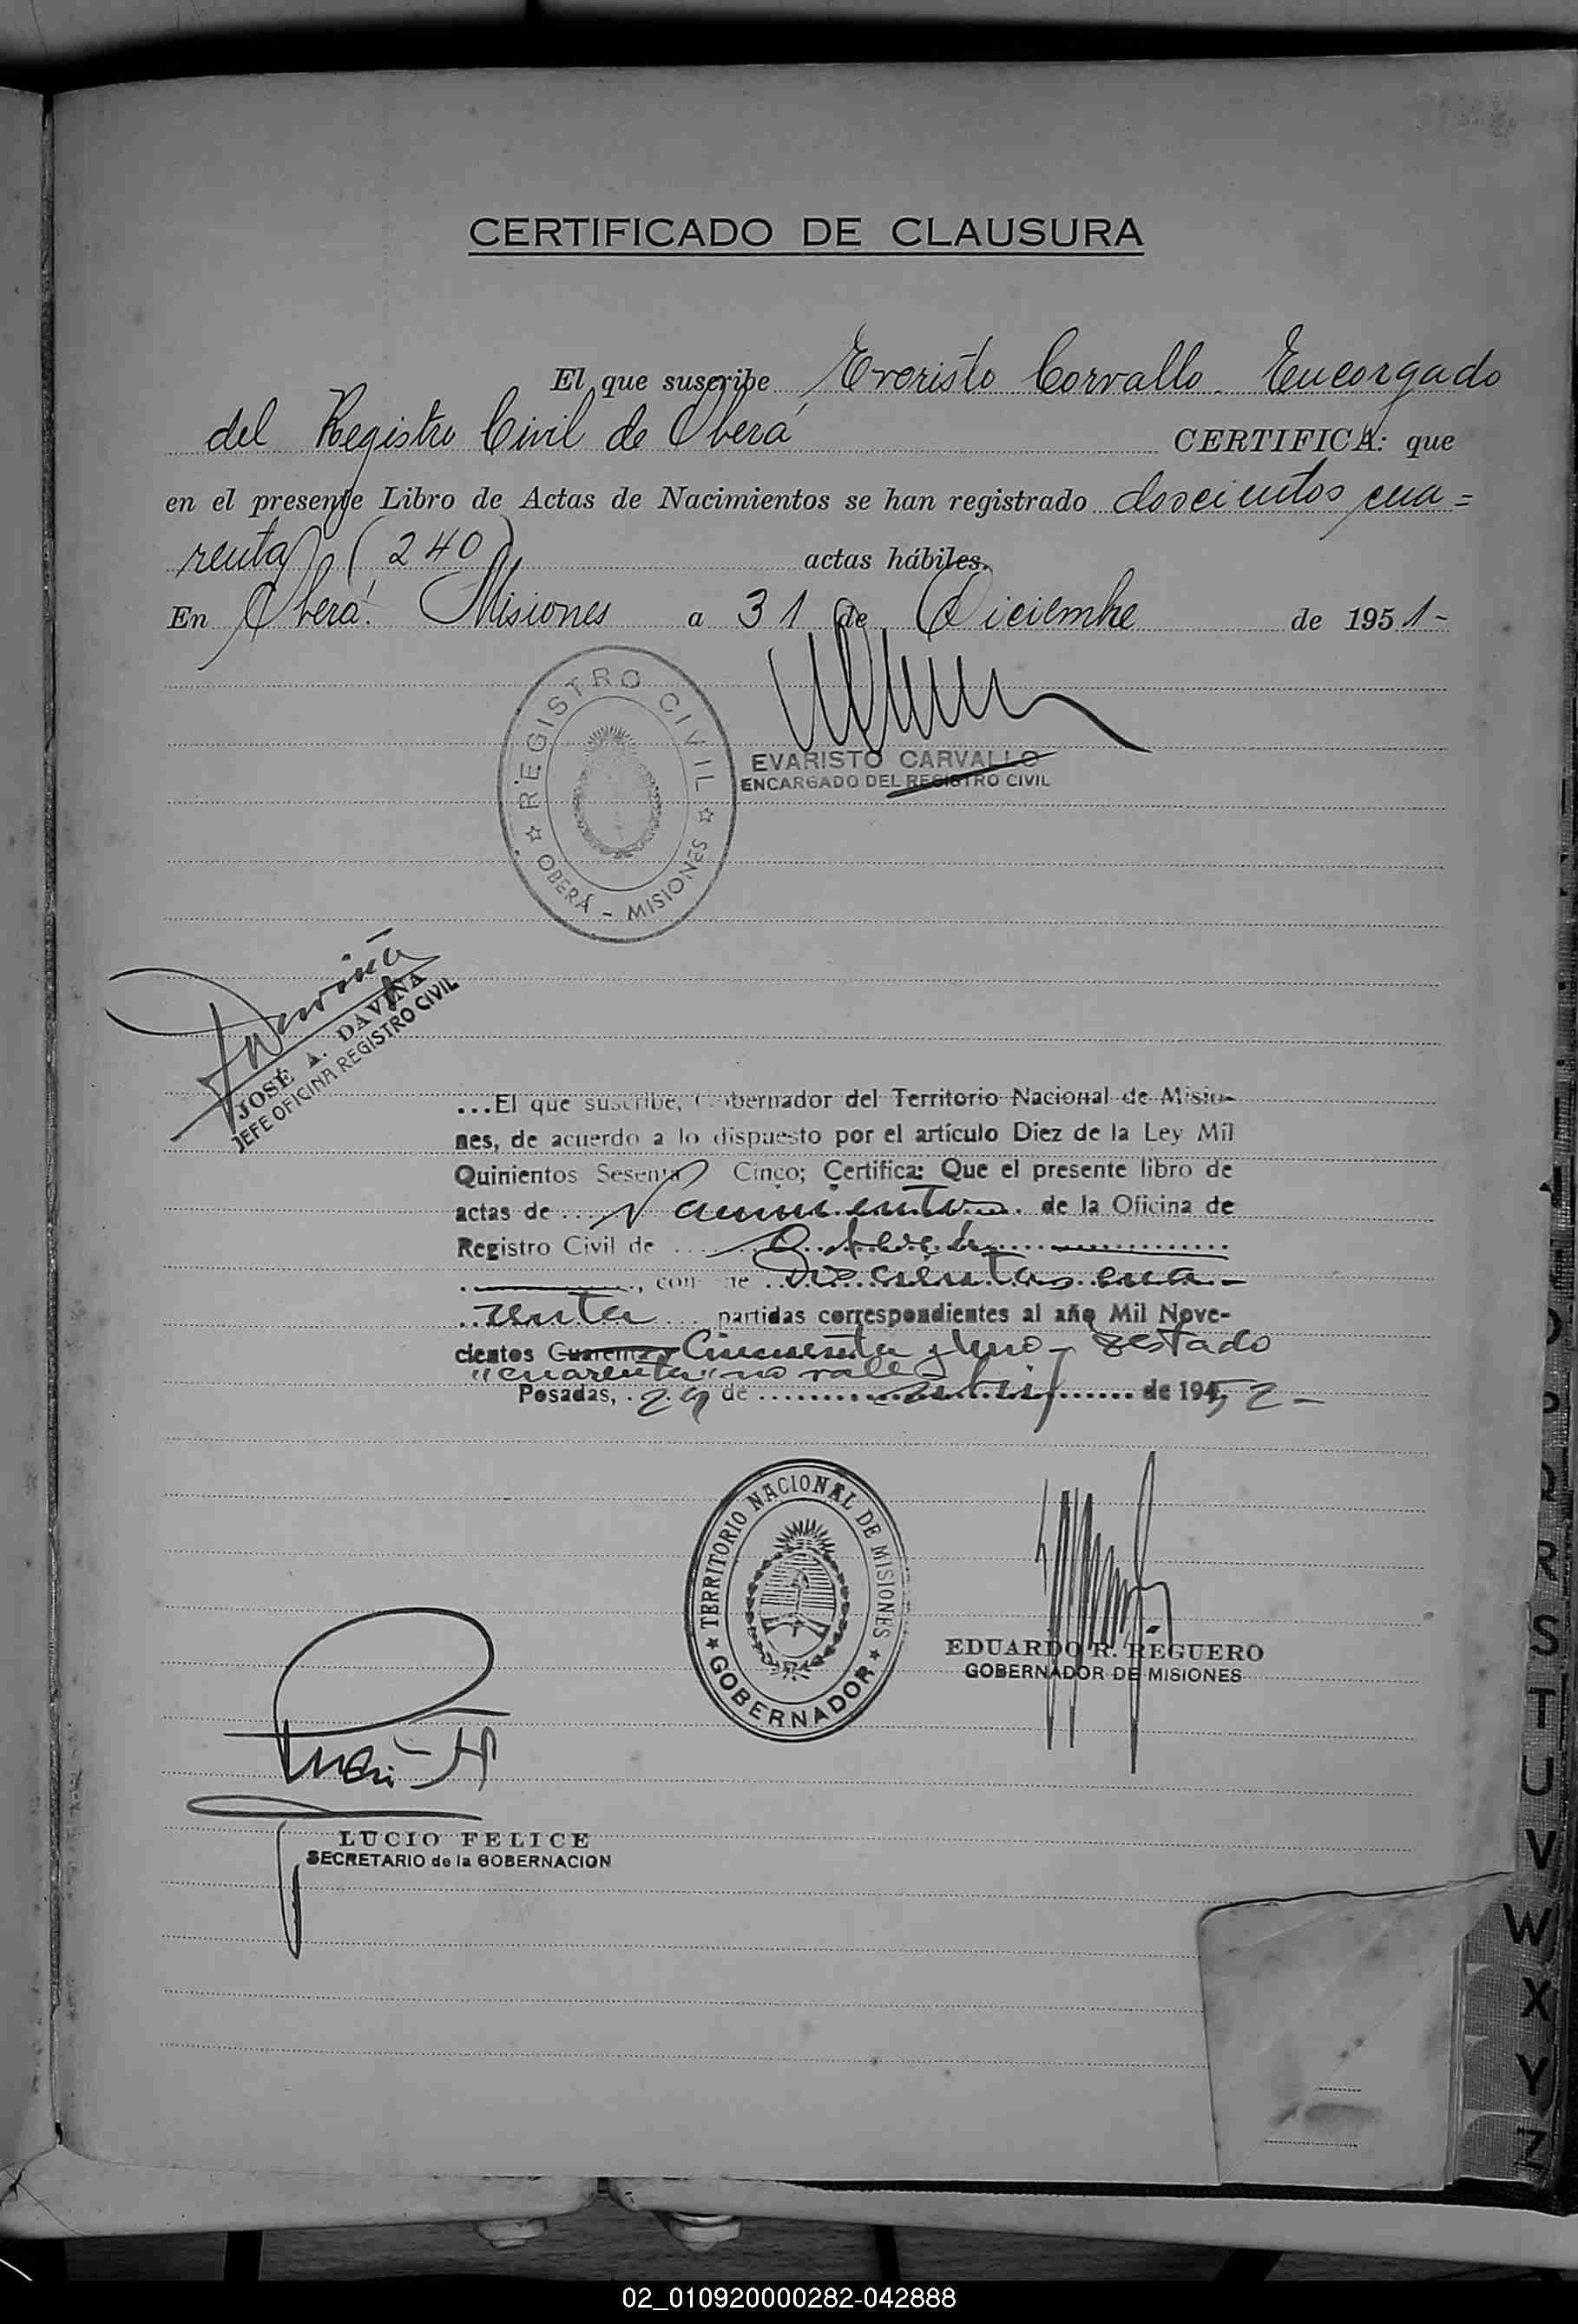 CERTIFICADO DE CLAUSURA
El que suscribe Evaristo Carvallo. Encargado
del Registro Civil de Oberá CERTIFICA: que
en el presente Libro de Actas de Nacimientos se han registrado doscientos cua=
renta (240) actas hábiles.
En Oberá. Misiones a 31 de Diciembre de 1951-
REGISTRO CIVIL
OBERÁ - MISIONES
EVARISTO CARVALLO
ENCARGADO DEL REGISTRO CIVIL
Daviña
JOSÉ A. DAVIÑA
JEFE OFICINA REGISTRO CIVIL
...El que suscribe, Gobernador del Territorio Nacional de Misio-
nes, de acuerdo a lo dispuesto por el artículo Diez de la Ley Mil
Quinientos Sesenta Cinco; Certifica: Que el presente libro de
actas de Nacimientos de la Oficina de
Registro Civil de Oberá
contiene Doscientas cua-
renta partidas correspondientes al año Mil Nove-
cientos Cuarenta y Cincuenta y Uno - Testado
"cuarenta" no vale
Posadas, 29 de de 1952-
TERRITORIO NACIONAL DE MISIONES
GOBERNADOR
EDUARDO R. REGUERO
GOBERNADOR DE MISIONES
LUCIO FELICE
SECRETARIO de la GOBERNACION
R
S
T
U
V
W
X
Y
Z
02_010920000282-042888